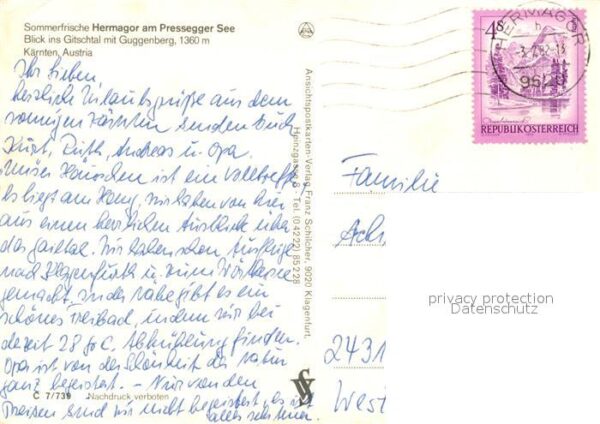 Sommerfrische Hermagor am Pressegger See
Blick ins Gitschtal mit Guggenberg, 1360 m
Kärnten, Austria
Ihr Lieben
herzliche Urlaubsgrüße aus dem
sonnigen Kärnten senden Euch
Kurt, Ruth, Andreas u. Opa.
Unser Häuschen ist ein Volltreffer
Es liegt am Hang, wir haben von hier
aus einen herrlichen Ausblick über
das Gailtal. Wir haben schon Ausflüge
nach Klagenfurth u. zum Wörthersee
gemacht. In der Nähe gibt es ein
schönes Freibad, in dem wir bei
derzeit 28 C. Abkühlung finden.
Opa ist von der Schönheit der Natur
ganz begeistert. - Nur von den
Preisen sind wir nicht begeistert, es ist
alles sehr teuer.
C 7/739 Nachdruck verboten
Ansichtspostkarten-Verlag Franz Schilcher, 9020 Klagenfurt,
Heinzgasse 8 · Tel. (04222) 85228
HERMAGOR
9620
4S
REPUBLIK ÖSTERREICH
Familie
Ach
2431
West
privacy protection
Datenschutz